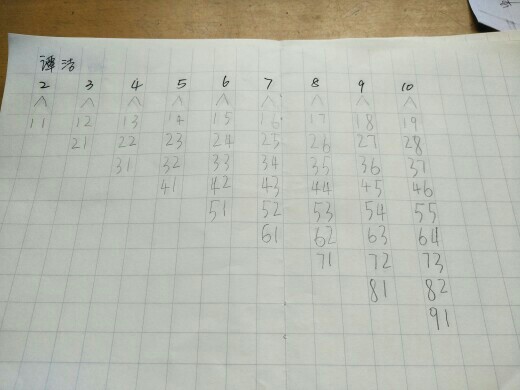 谭浩
2 3 4 5 6 7 8 9 10
11 12 13 14 15 16 17 18 19
21 22 23 24 25 26 27 28
31 32 33 34 35 36 37
41 42 43 44 45 46
51 52 53 54 55
61 62 63 64
71 72 73
81 82
91